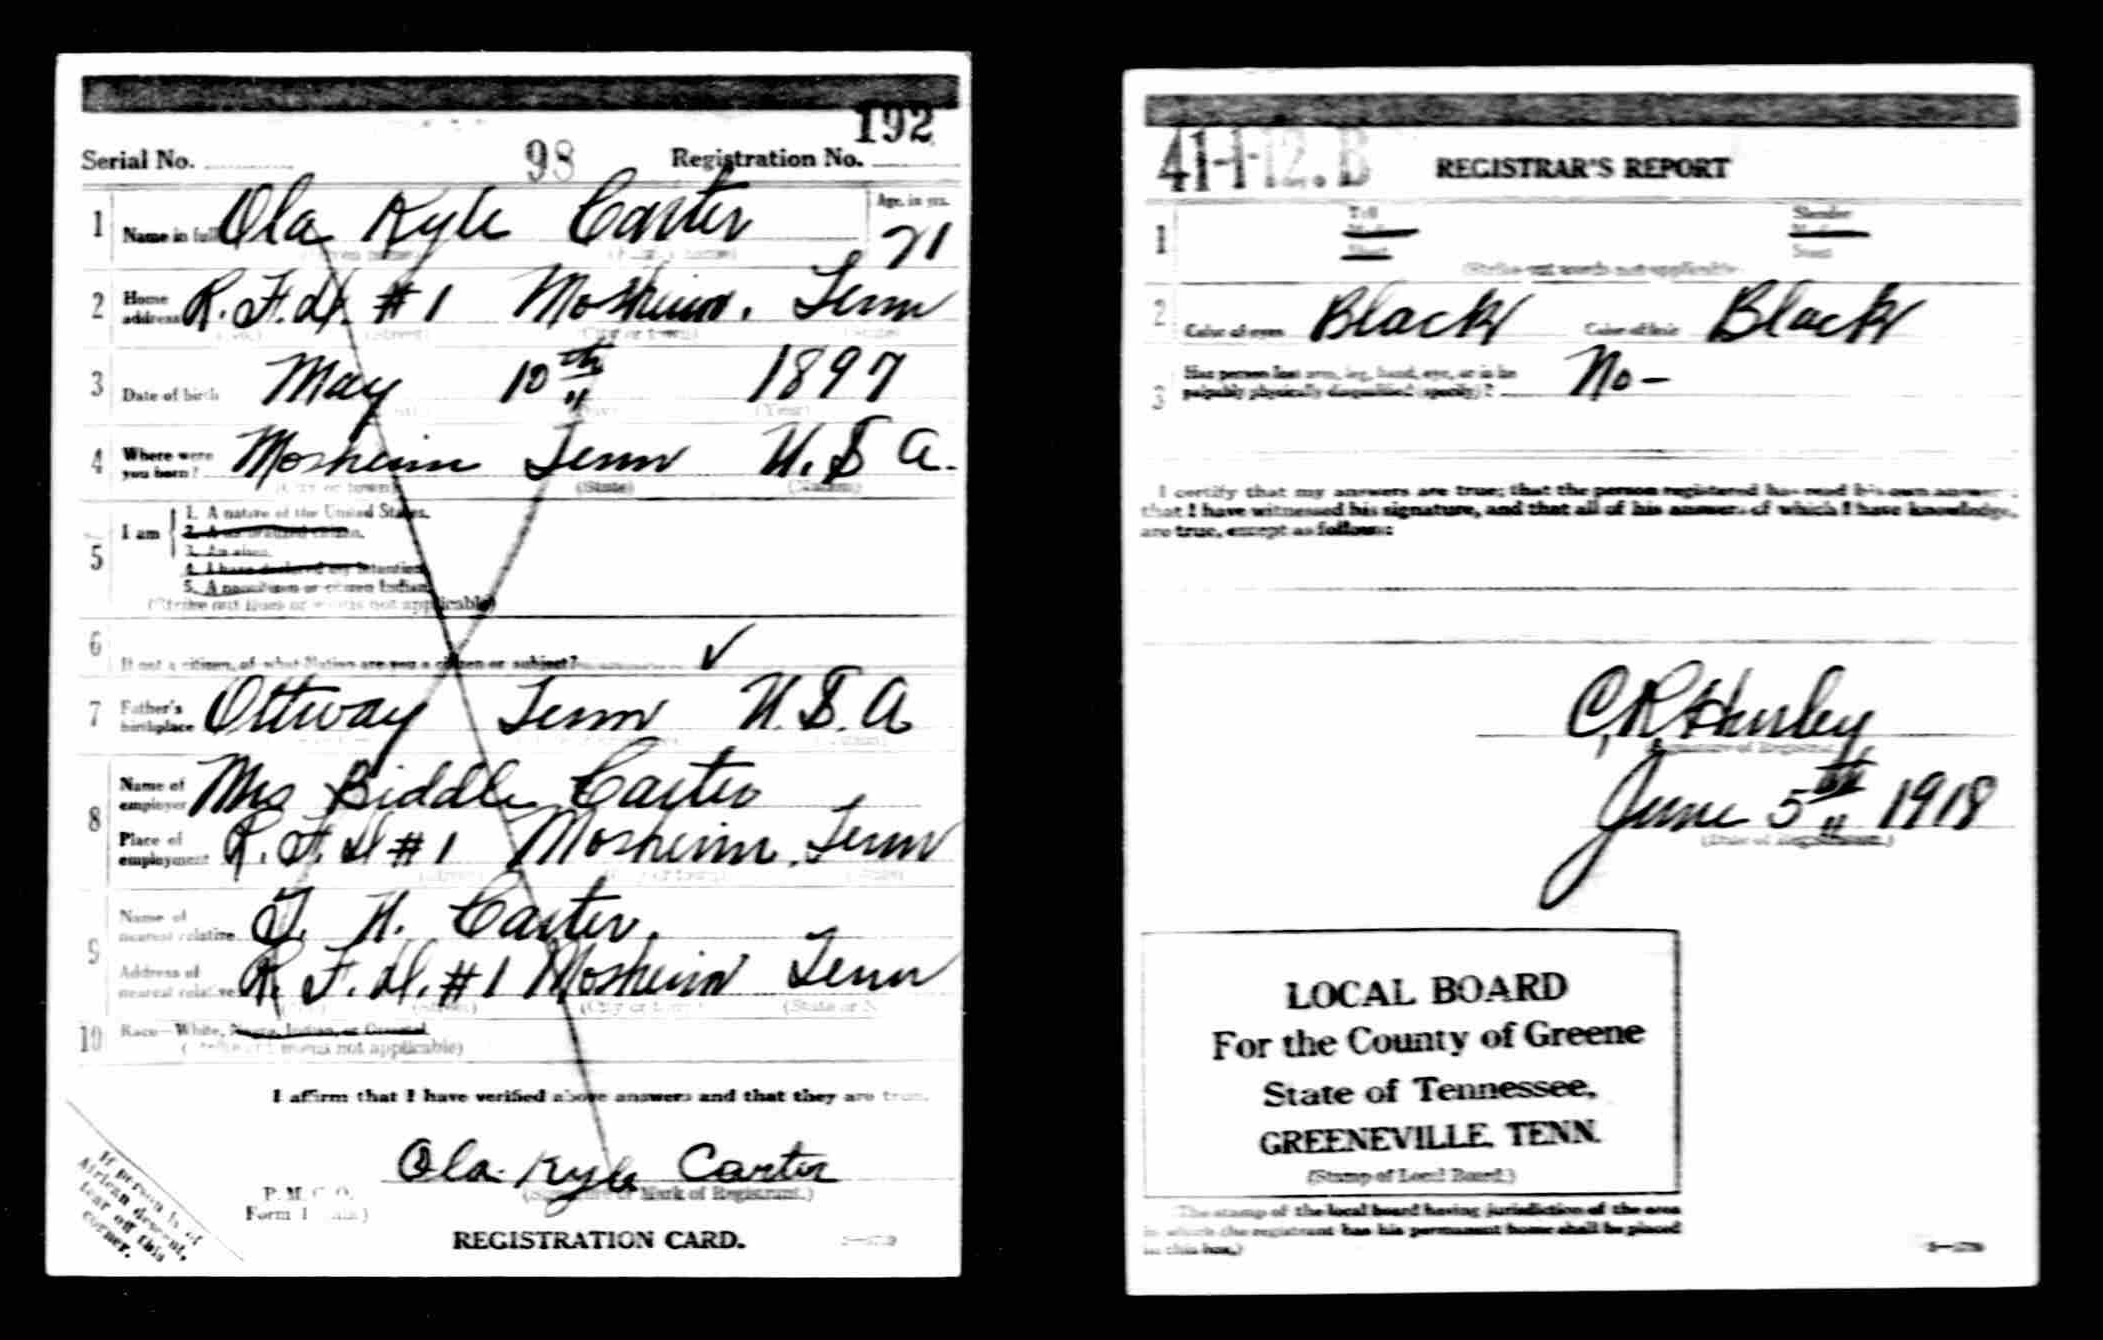 192
Serial No. 98 Registration No.
1 Name in full Ola Kyle Carter Age, in yrs. 21
(Given name) (Family name)
2 Home address R. F. D. # 1 Mosheim. Tenn
(No.) (Street) (City or town) (State)
3 Date of birth May 10th 1897
(Day) (Year)
4 Where were you born? Mosheim Tenn U. S A.
(City or town) (State) (Nation)
5 I am
1. A native of the United States.
2. A naturalized citizen.
3. An alien.
4. I have declared my intention
5. A noncitizen or citizen Indian.
(Strike out lines or words not applicable)
6 If not a citizen, of what Nation are you a citizen or subject? ✓
7 Father's birthplace Ottway Tenn U. S. A
8 Name of employer Mrs Biddle Carter
Place of employment R. F. D # 1 Mosheim, Tenn
(Street) (City or town) (State)
9 Name of nearest relative T. H. Carter.
Address of nearest relative R. F. D. # 1 Mosheim Tenn
(Street) (City or town)
10 Race—White, Negro, Indian, or Oriental.
(Strike out words not applicable)
I affirm that I have verified above answers and that they are true.
Ola Kyle Carter
(Signature or Mark of Registrant.)
P. M. G. O.
Form 1
REGISTRATION CARD.
If person is of
African descent,
tear off this
corner.
41-1-12. B REGISTRAR'S REPORT
1 Tall Slender
Medium Medium
Short Stout
(Strike out words not applicable)
2 Color of eyes Black Color of hair Black
3 Has person lost arm, leg, hand, eye, or is he
palpably physically disqualified? (specify)? No —
I certify that my answers are true; that the person registered has read his own answers;
that I have witnessed his signature, and that all of his answers of which I have knowledge,
are true, except as follows:
C. R. Hurley
(Signature of Registrar)
June 5th 1918
(Date of Registration.)
LOCAL BOARD
For the County of Greene
State of Tennessee,
GREENEVILLE, TENN.
(Stamp of Local Board.)
(The stamp of the local board having jurisdiction of the area
in which the registrant has his permanent home shall be placed
in this box.)